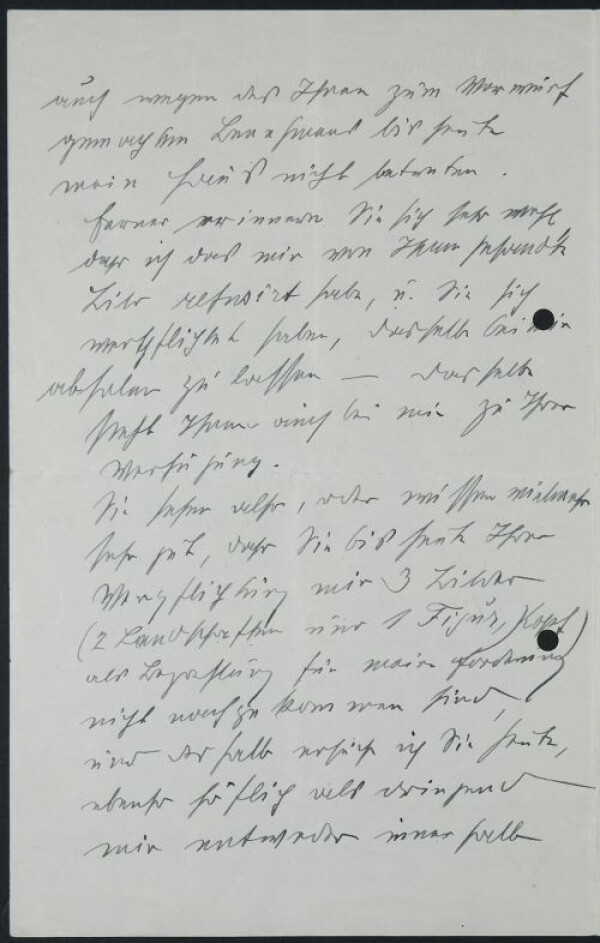 auch wegen des Ihnen zum Vorwurf
gemachten Benehmens bis heute
mein Haus nicht betreten.
Ferner erinnern Sie sich sehr wohl
daß ich das mir von Ihnen gesandte
Bild refusirt habe, u. Sie sich
verpflichtet haben, dasselbe bei mir
abholen zu lassen — dasselbe
steht Ihnen auch bei mir zu Ihrer
Verfügung.
Sie sehen also, oder wissen vielmehr
sehr gut, daß Sie bis heute Ihrer
Verpflichtung mir 3 Bilder
(2 Landschaften und 1 Figur, Kopf)
als Bezahlung für meine Forderung
nicht nachgekommen sind,
und deshalb ersuche ich Sie heute,
ebenso höflich als dringend
mir entweder innerhalb